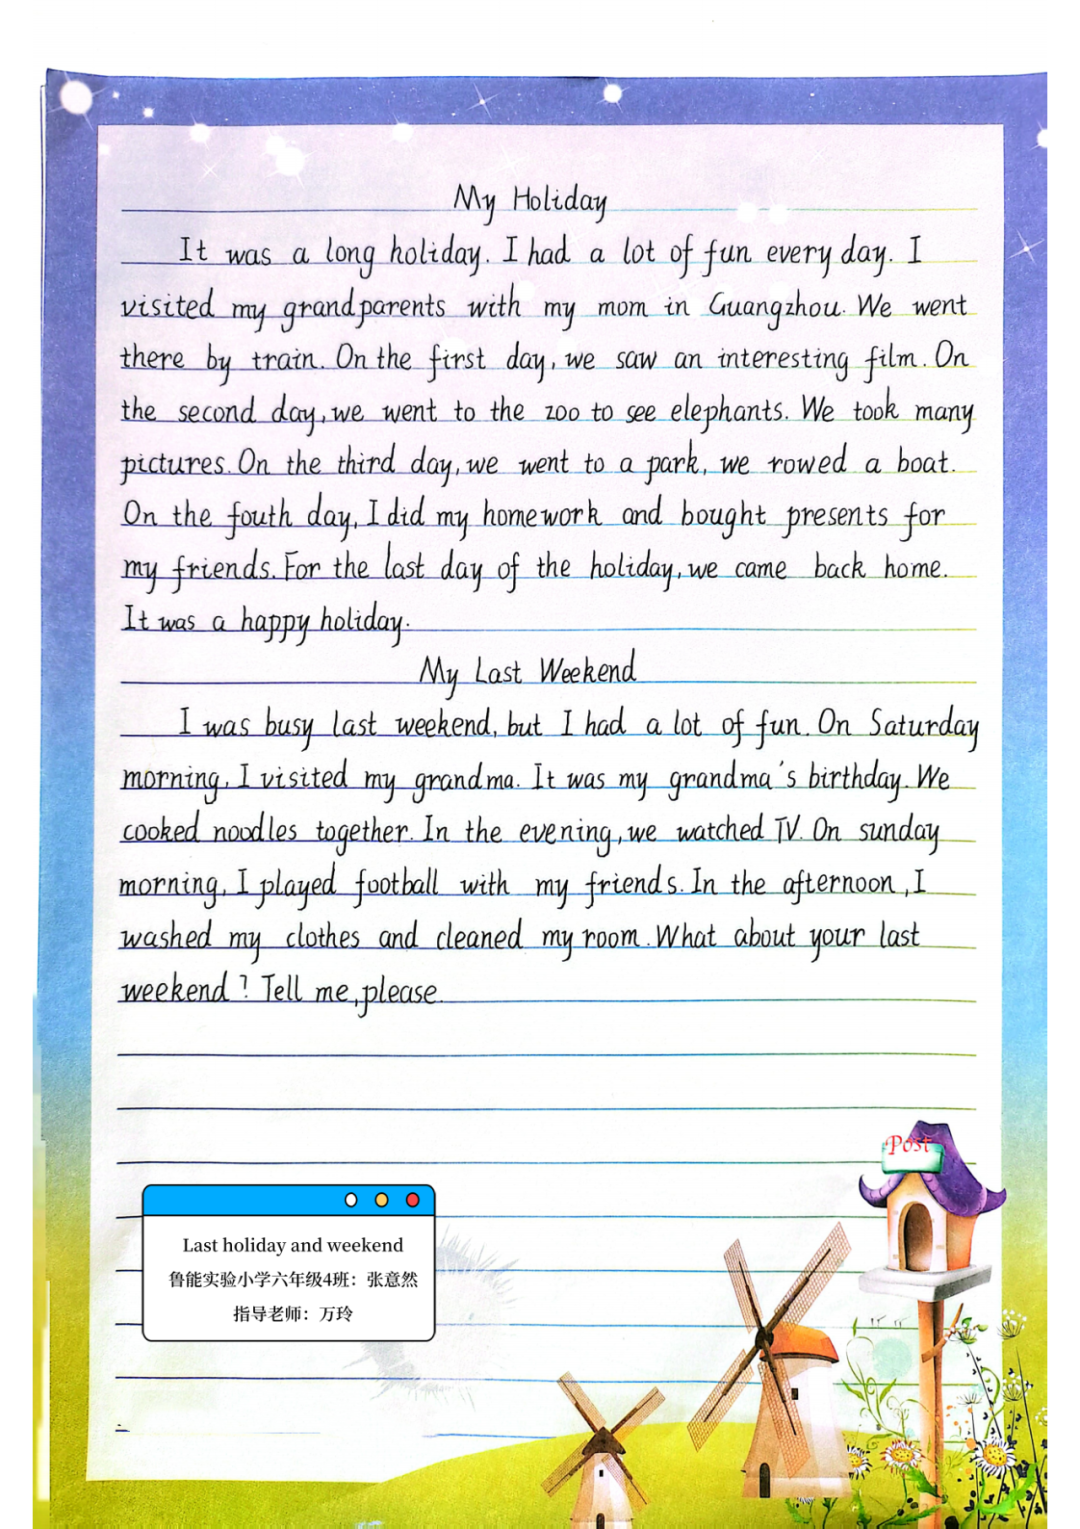 My Holiday
It was a long holiday. I had a lot of fun every day. I
visited my grandparents with my mom in Guangzhou. We went
there by train. On the first day, we saw an interesting film. On
the second day, we went to the zoo to see elephants. We took many
pictures. On the third day, we went to a park, we rowed a boat.
On the fouth day, I did my homework and bought presents for
my friends. For the last day of the holiday, we came back home.
It was a happy holiday.
My Last Weekend
I was busy last weekend, but I had a lot of fun. On Saturday
morning, I visited my grandma. It was my grandma's birthday. We
cooked noodles together. In the evening, we watched TV. On sunday
morning, I played football with my friends. In the afternoon, I
washed my clothes and cleaned my room. What about your last
weekend? Tell me, please.
Post
Last holiday and weekend
鲁能实验小学六年级4班：张意然
指导老师：万玲